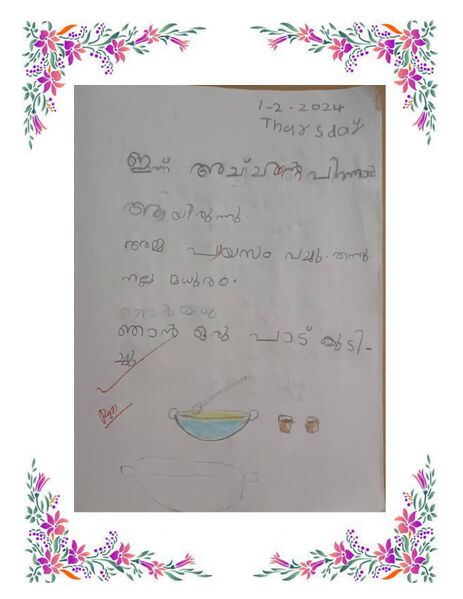 1-2-2024
Tharsday
ഇന്ന് അച്ചൻ്റെ പിന്നാൾ
ആയിരുന്നു.
അമ്മ പായസം വച്ചു. തന്നു.
നല്ല മധുരം.
ഞാൻ ഒരു
ഞാൻ ഒരു പാട് കുടി-
ച്ചു